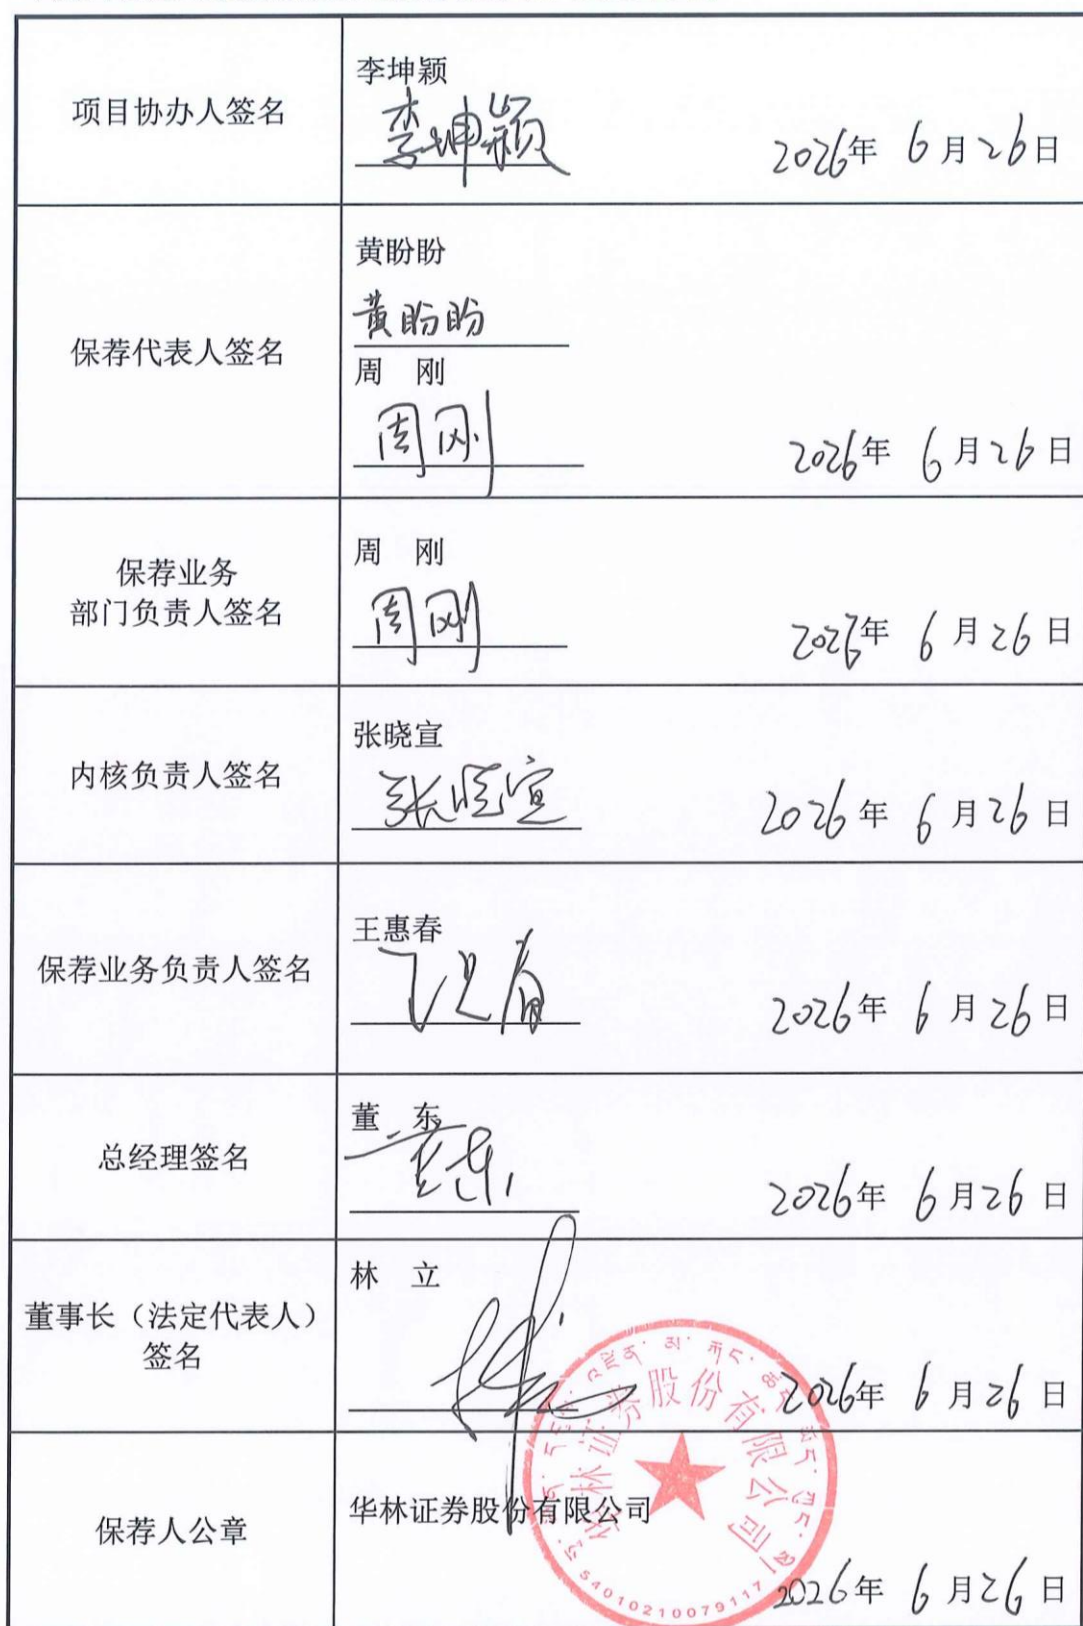 项目协办人签名
李坤颖
李坤颖
2026年 6月26日
保荐代表人签名
黄盼盼
黄盼盼
周 刚
周刚
2026年 6月26日
保荐业务
部门负责人签名
周 刚
周刚
2026年 6月26日
内核负责人签名
张晓宣
张晓宣
2026年 6月26日
保荐业务负责人签名
王惠春
2026年 6月26日
总经理签名
董 东
董东
2026年 6月26日
董事长（法定代表人）
签名
林 立
2026年 6月26日
保荐人公章
华林证券股份有限公司
华林证券股份有限公司
54010210079117
2026年 6月26日